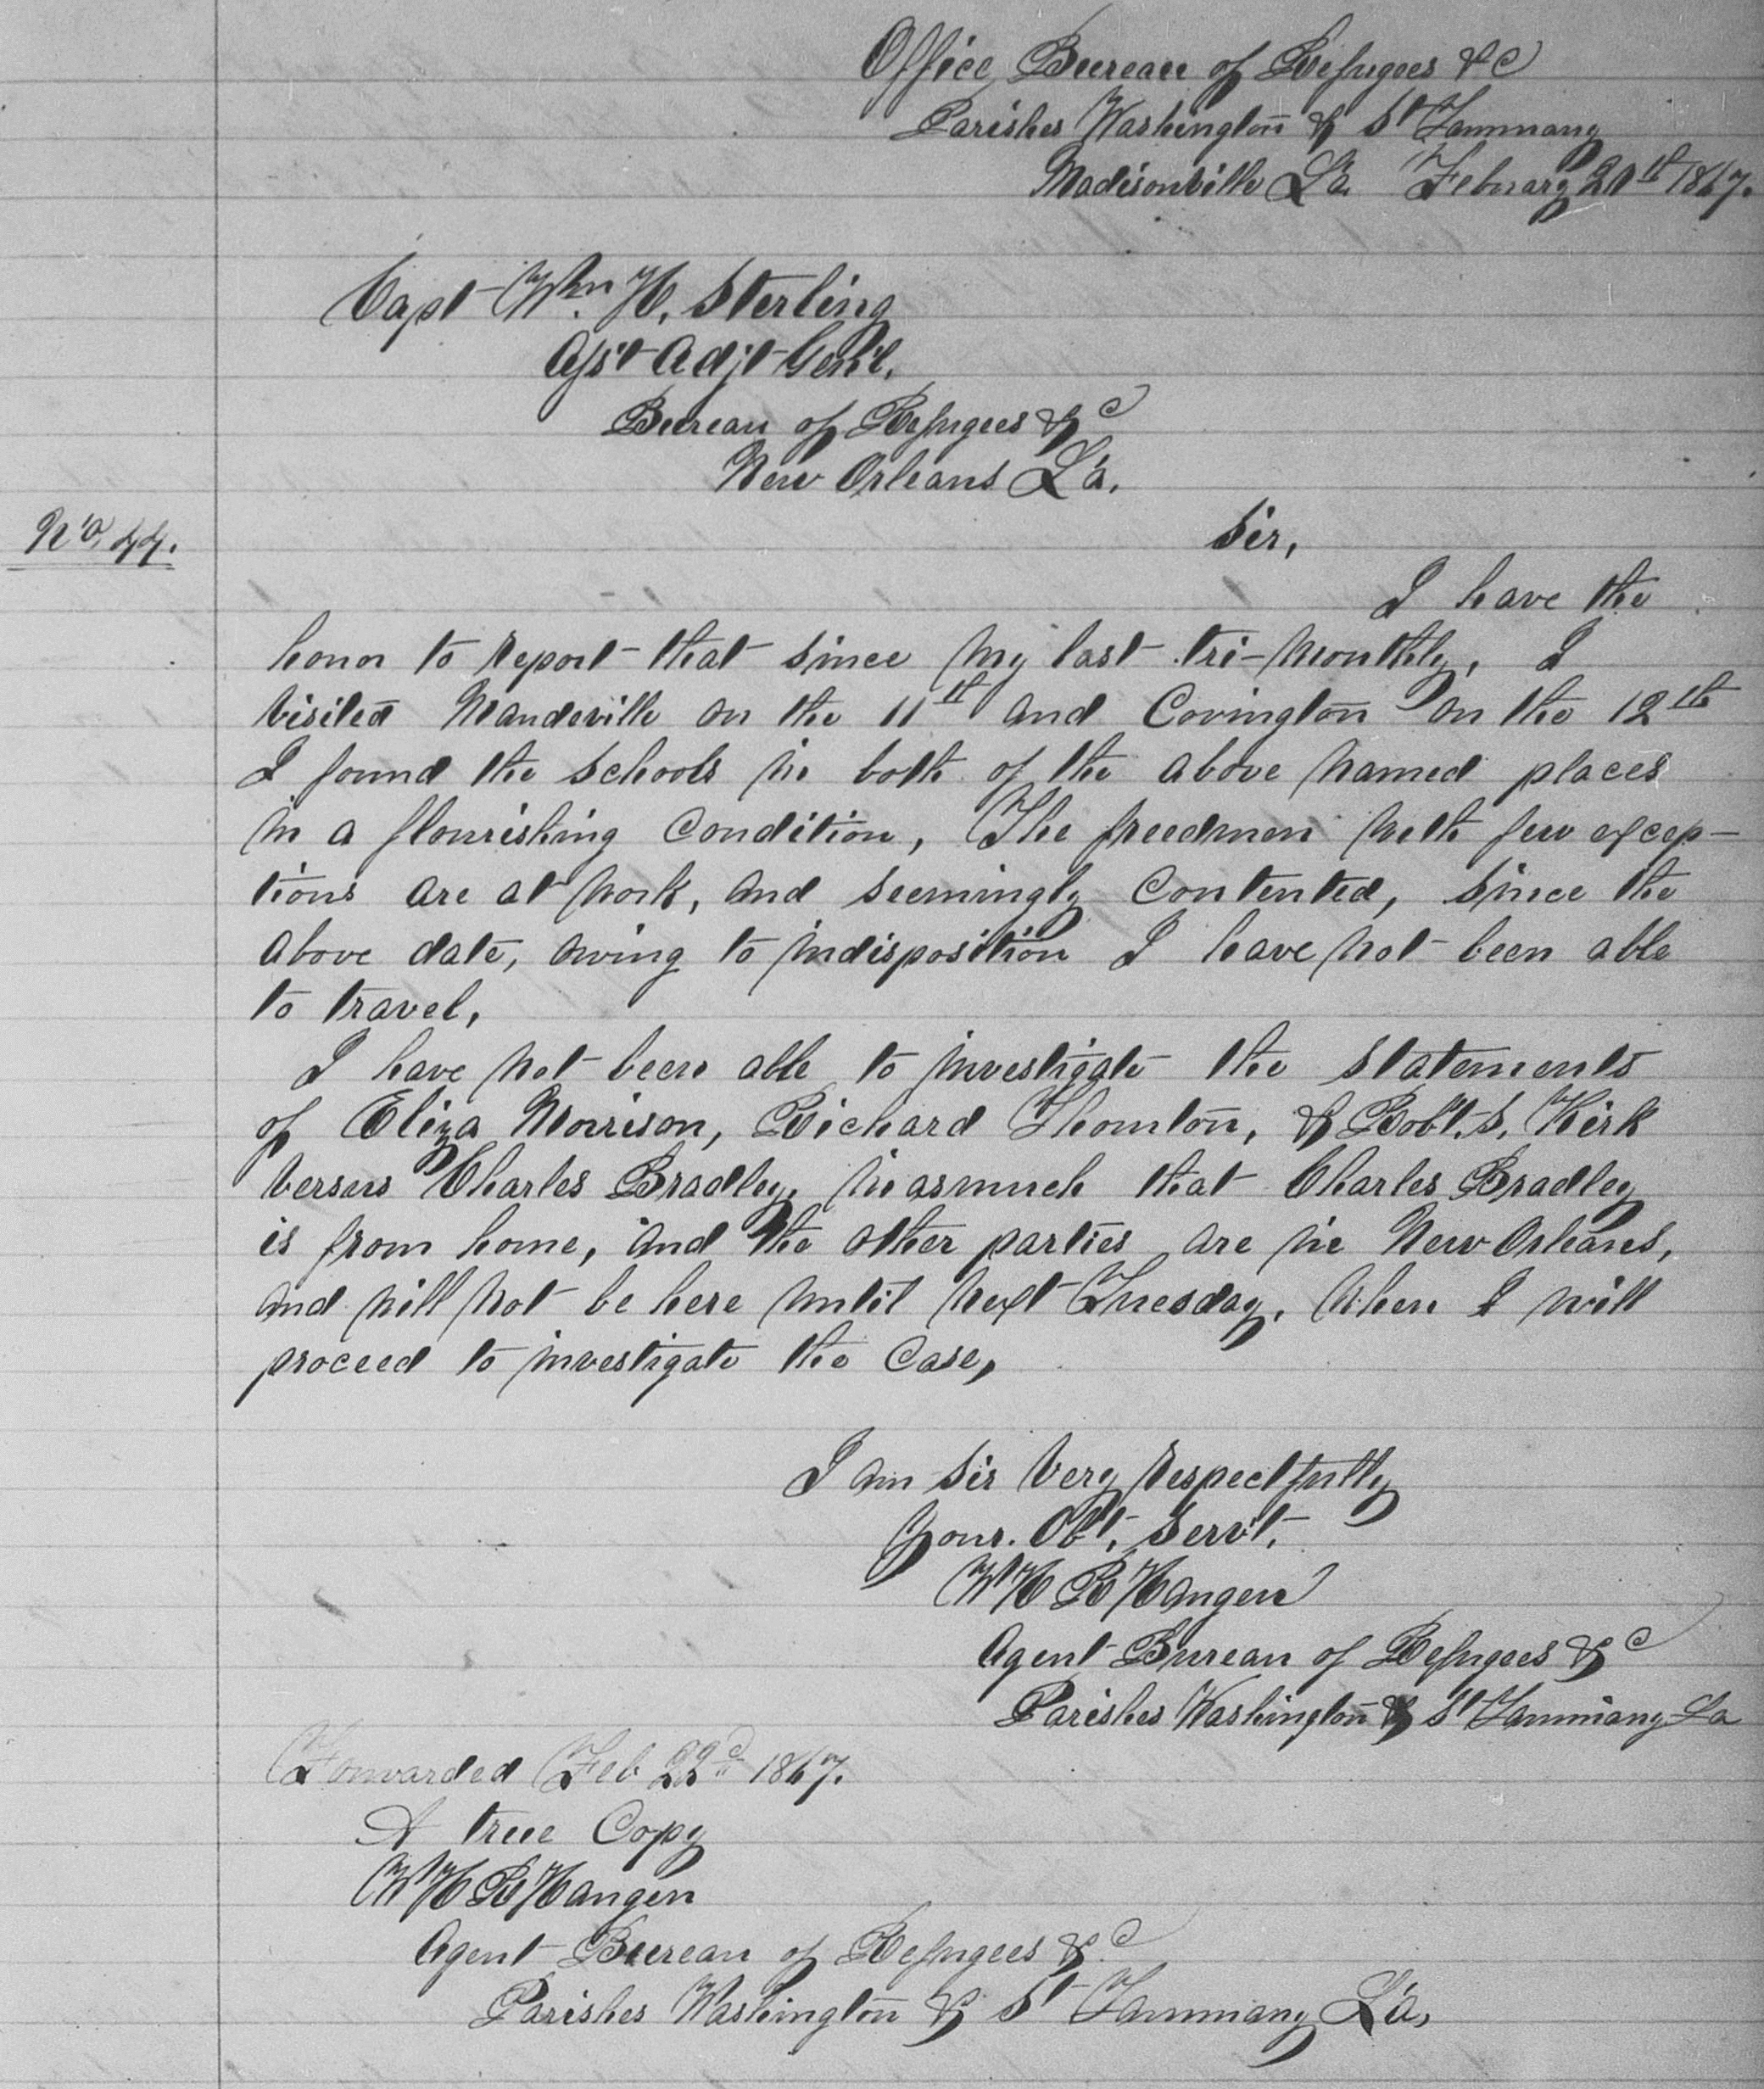 Office, Bureau of Refugees &c
Parishes Washington & St Tammany
Madisonville La. Febuary 20th 1867.
Capt Wm. H. Sterling
Asst Adjt Gen'l.
Bureau of Refugees &c
New Orleans La.
No. 44.
Sir,
I have the
honor to report that since my last tri-monthly, I
visited Mandeville on the 11th and Covington on the 12th
I found the schools in both of the above named places
in a flourishing condition, The freedmen with few excep-
tions are at work, and seemingly contented, since the
above date, owing to indisposition I have not been able
to travel,
I have not been able to investigate the statements
of Eliza Morrison, Richard Thornton, & Robt. S. Kirk
versus Charles Bradley, inasmuch that Charles Bradley
is from home, and the other parties are in New Orleans,
and will not be here until next Tuesday, when I will
proceed to investigate the case,
I am Sir Very respectfully
Your. Obt. Servt.
WHR Hangen
Agent Bureau of Refugees &c
Parishes Washington & St Tammany La
Forwarded Feb 22d 1867.
A true Copy
WHR Hangen
Agent Bureau of Refugees &c
Parishes Washington & St Tammany La,